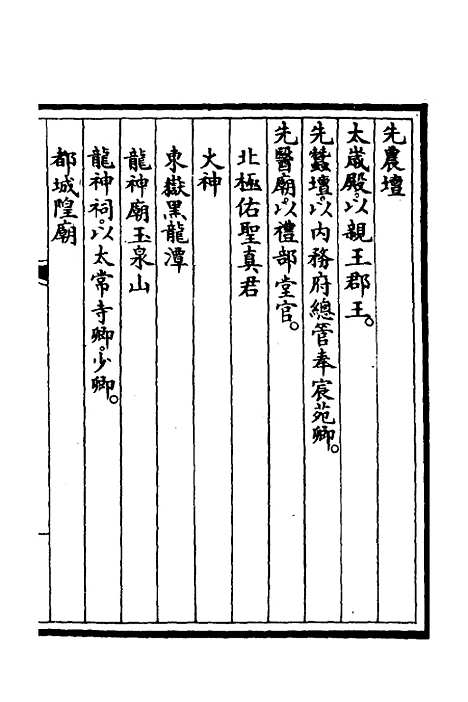 先農壇
太歲殿。以親王郡王。
先蠶壇。以內務府總管奉宸苑卿。
先醫廟。以禮部堂官。
北極佑聖真君
火神
東嶽黑龍潭
龍神廟玉泉山
龍神祠。以太常寺卿。少卿。
都城隍廟